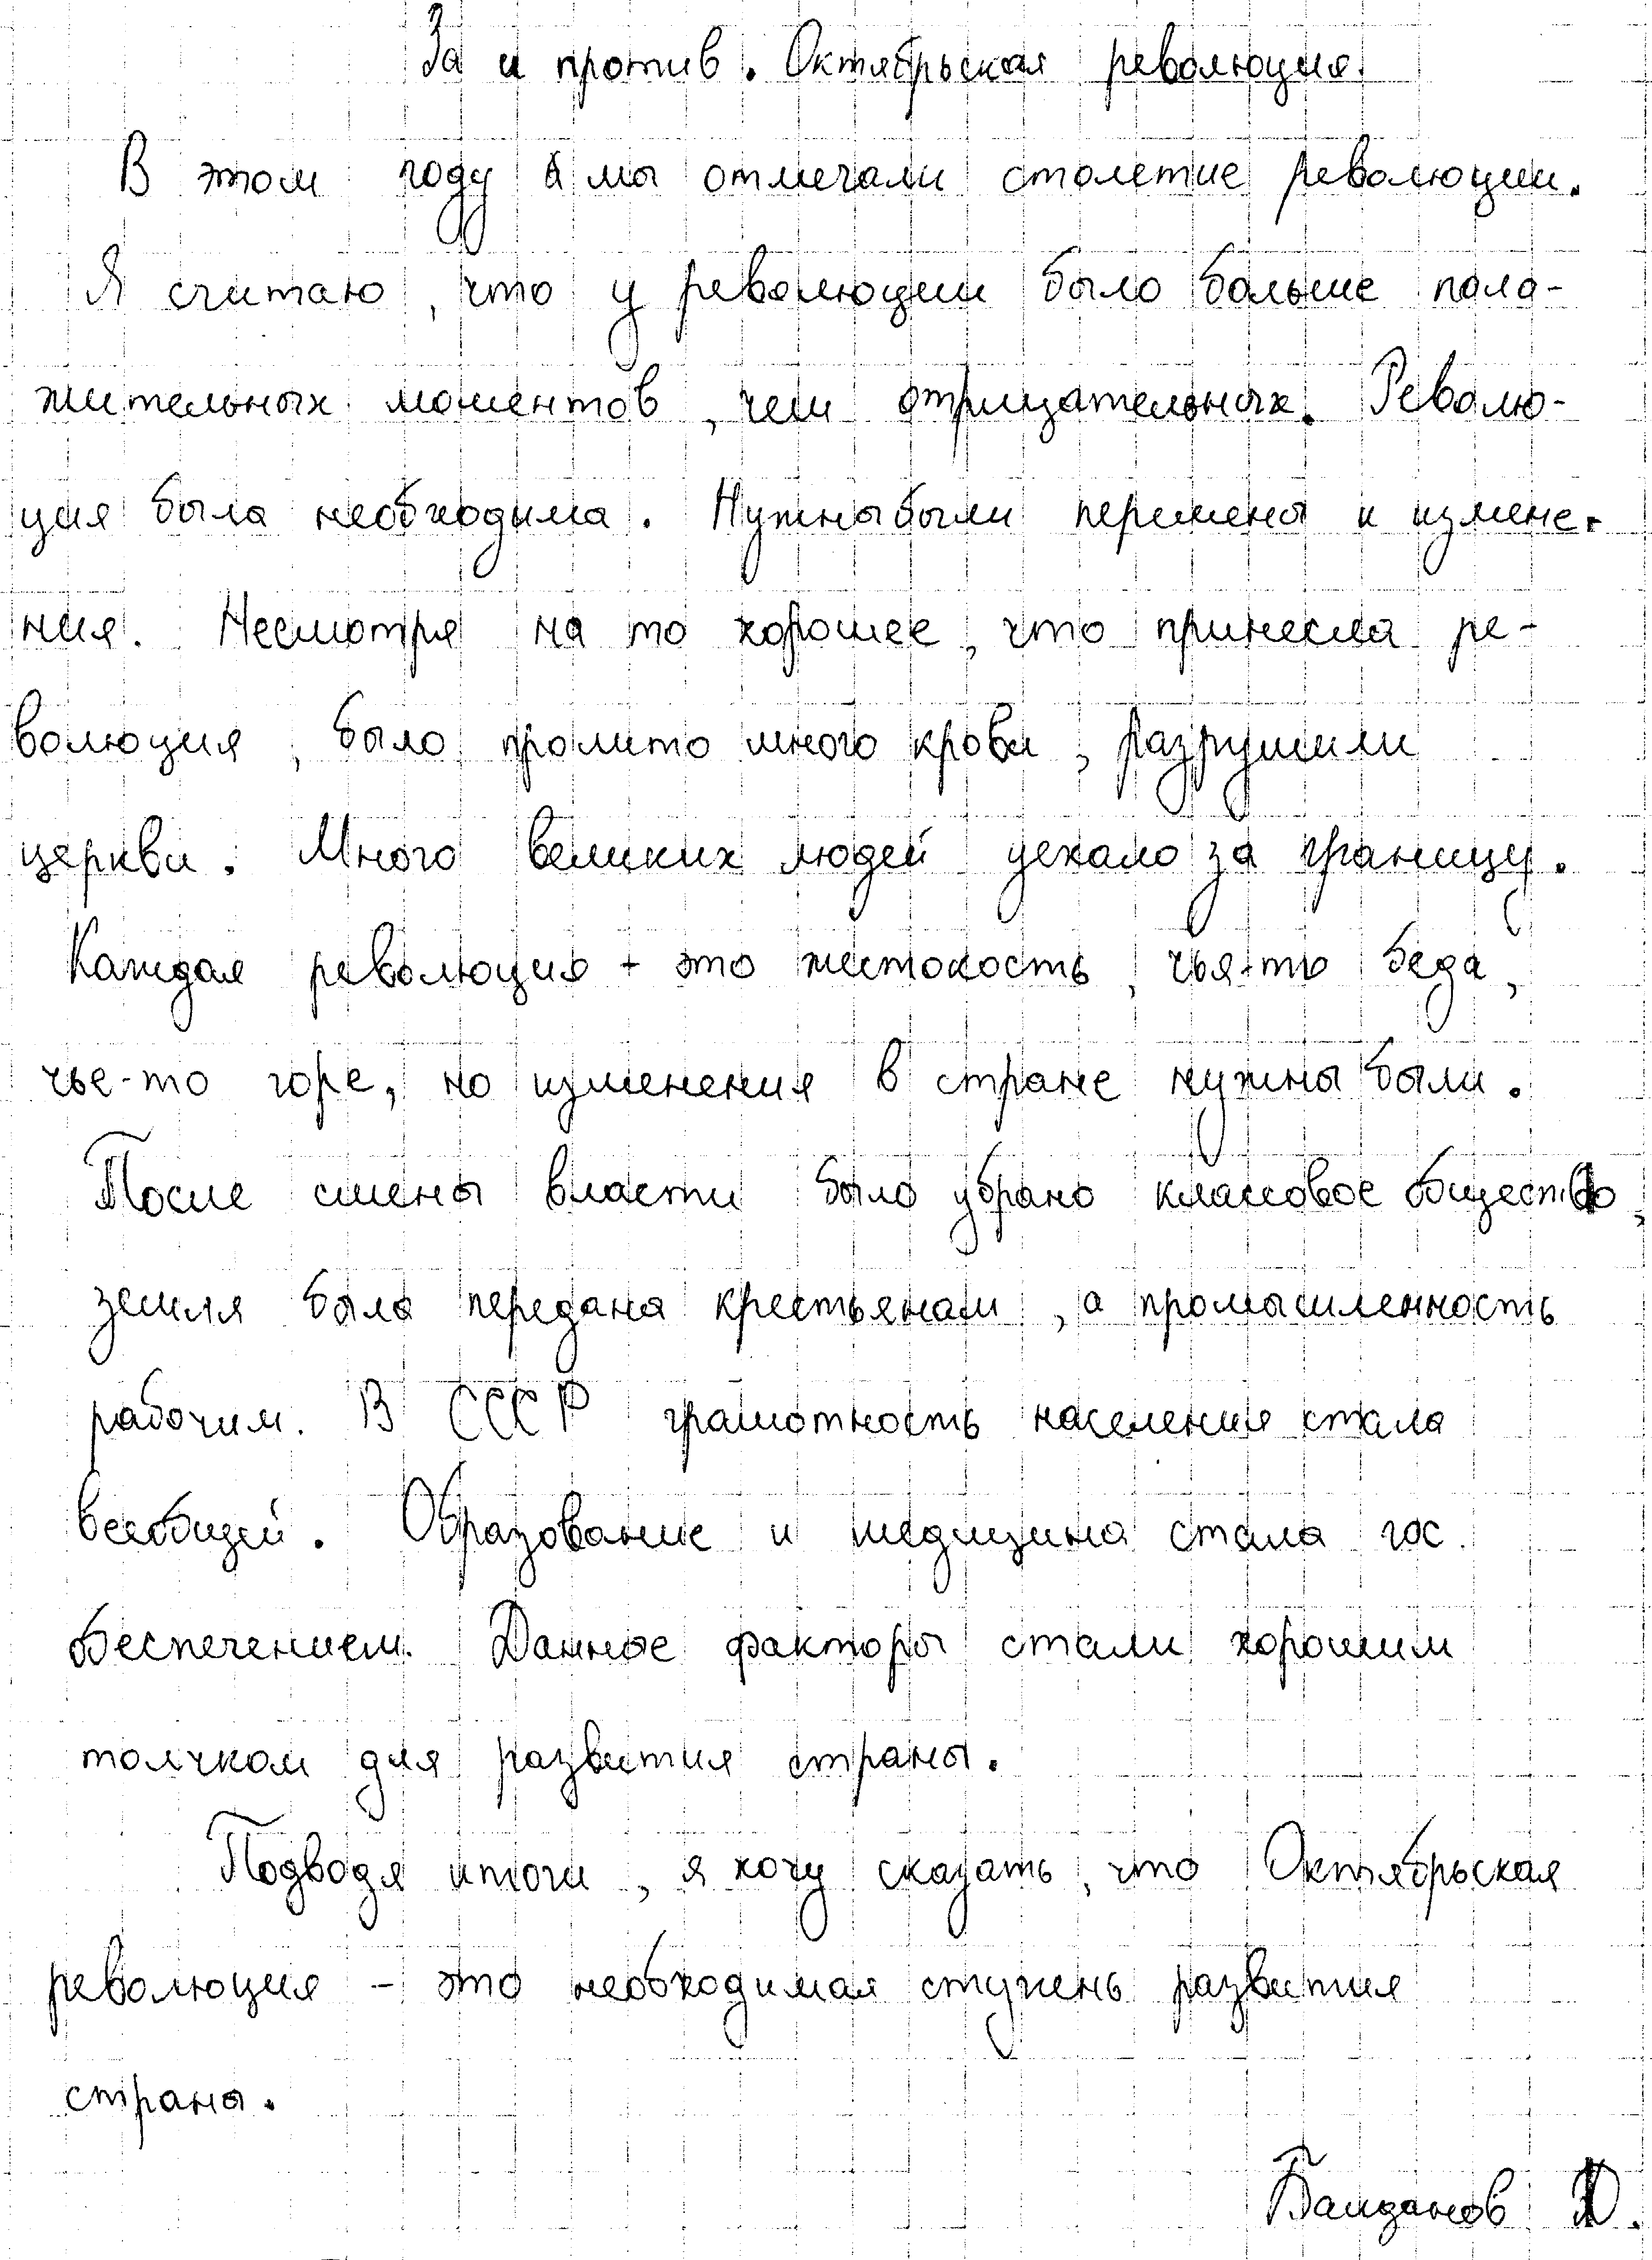 За и против. Октябрьская революция.
В этом году мы отмечали столетие революции.
Я считаю, что у революции было больше поло-
жительных моментов, чем отрицательных. Револю-
ция была необходима. Нужны были перемены и измене-
ния. Несмотря на то хорошее, что принесла ре-
волюция, было пролито много крови, разрушили
церкви. Много великих людей уехало за границу.
Каждая революция - это жестокость, чья-то беда,
чье-то горе, но изменения в стране нужны были.
После смены власти было убрано классовое общество,
земля была передана крестьянам, а промышленность
рабочим. В СССР грамотность населения стала
всеобщей. Образование и медицина стала гос.
обеспечением. Данные факторы стали хорошим
толчком для развития страны.
Подводя итоги, я хочу сказать, что Октябрьская
революция - это необходимая ступень развития
страны.
Д.